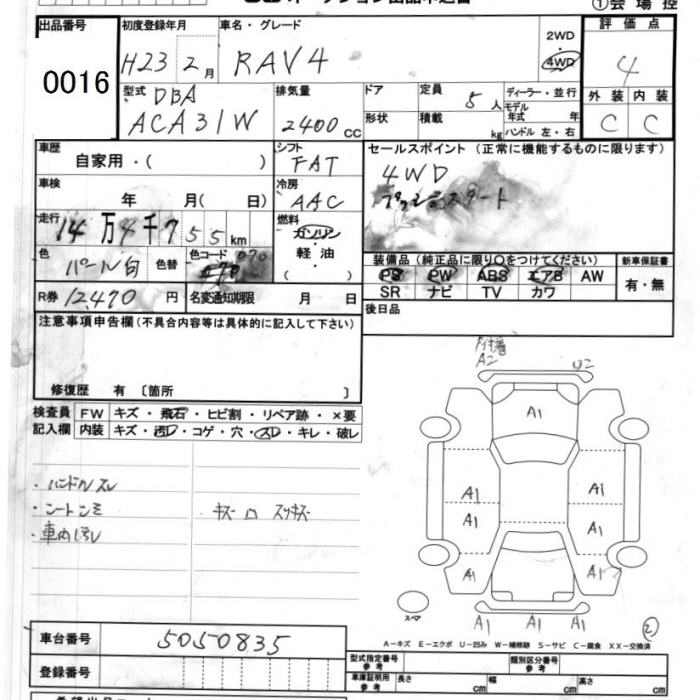 ①会場控
出品番号 初度登録年月 車名・グレード 評価点
0016 H23 2月 RAV4 2WD 4WD 4
型式 排気量 ドア 定員 ディーラー・並行 外装 内装
DBA 5人 モデル年式 年
ACA31W 2400CC 形状 積載 kg ハンドル 左・右 C C
車歴 シフト セールスポイント (正常に機能するものに限ります)
自家用・( ) FAT 4WD
車検 冷房 プッシュスタート
年 月( 日) AAC
走行 燃料
14万4千755km ガソリン・
色 色替 色コード 軽油・ 装備品 (純正品に限り○をつけてください) 新車保証書
パール白 070 ( ) PS PW ABS エアB AW 有・無
070 SR ナビ TV カワ
R券 12,470円 名変通知期限 月 日 後日品
注意事項申告欄 (不具合内容等は具体的に記入して下さい)
修復歴 有 〔箇所 〕
検査員 FW キズ・飛石・ヒビ割・リペア跡・×要
記入欄 内装 キズ・汚レ・コゲ・穴・スレ・キレ・破レ
・ハンドルスレ
・シートシミ キズ スリキズ
・車内汚レ
A1
A1 A1
A1 A1
A1 A1
スペア A1 A1 A1 ②
A−キズ E−エクボ U−凹み W−補修跡 S−サビ C−腐食 XX−交換済
車台番号 5050835
型式指定番号 参考 類別区分番号 参考
登録番号 車庫証明用 参考 長さ cm 幅 cm 高さ cm